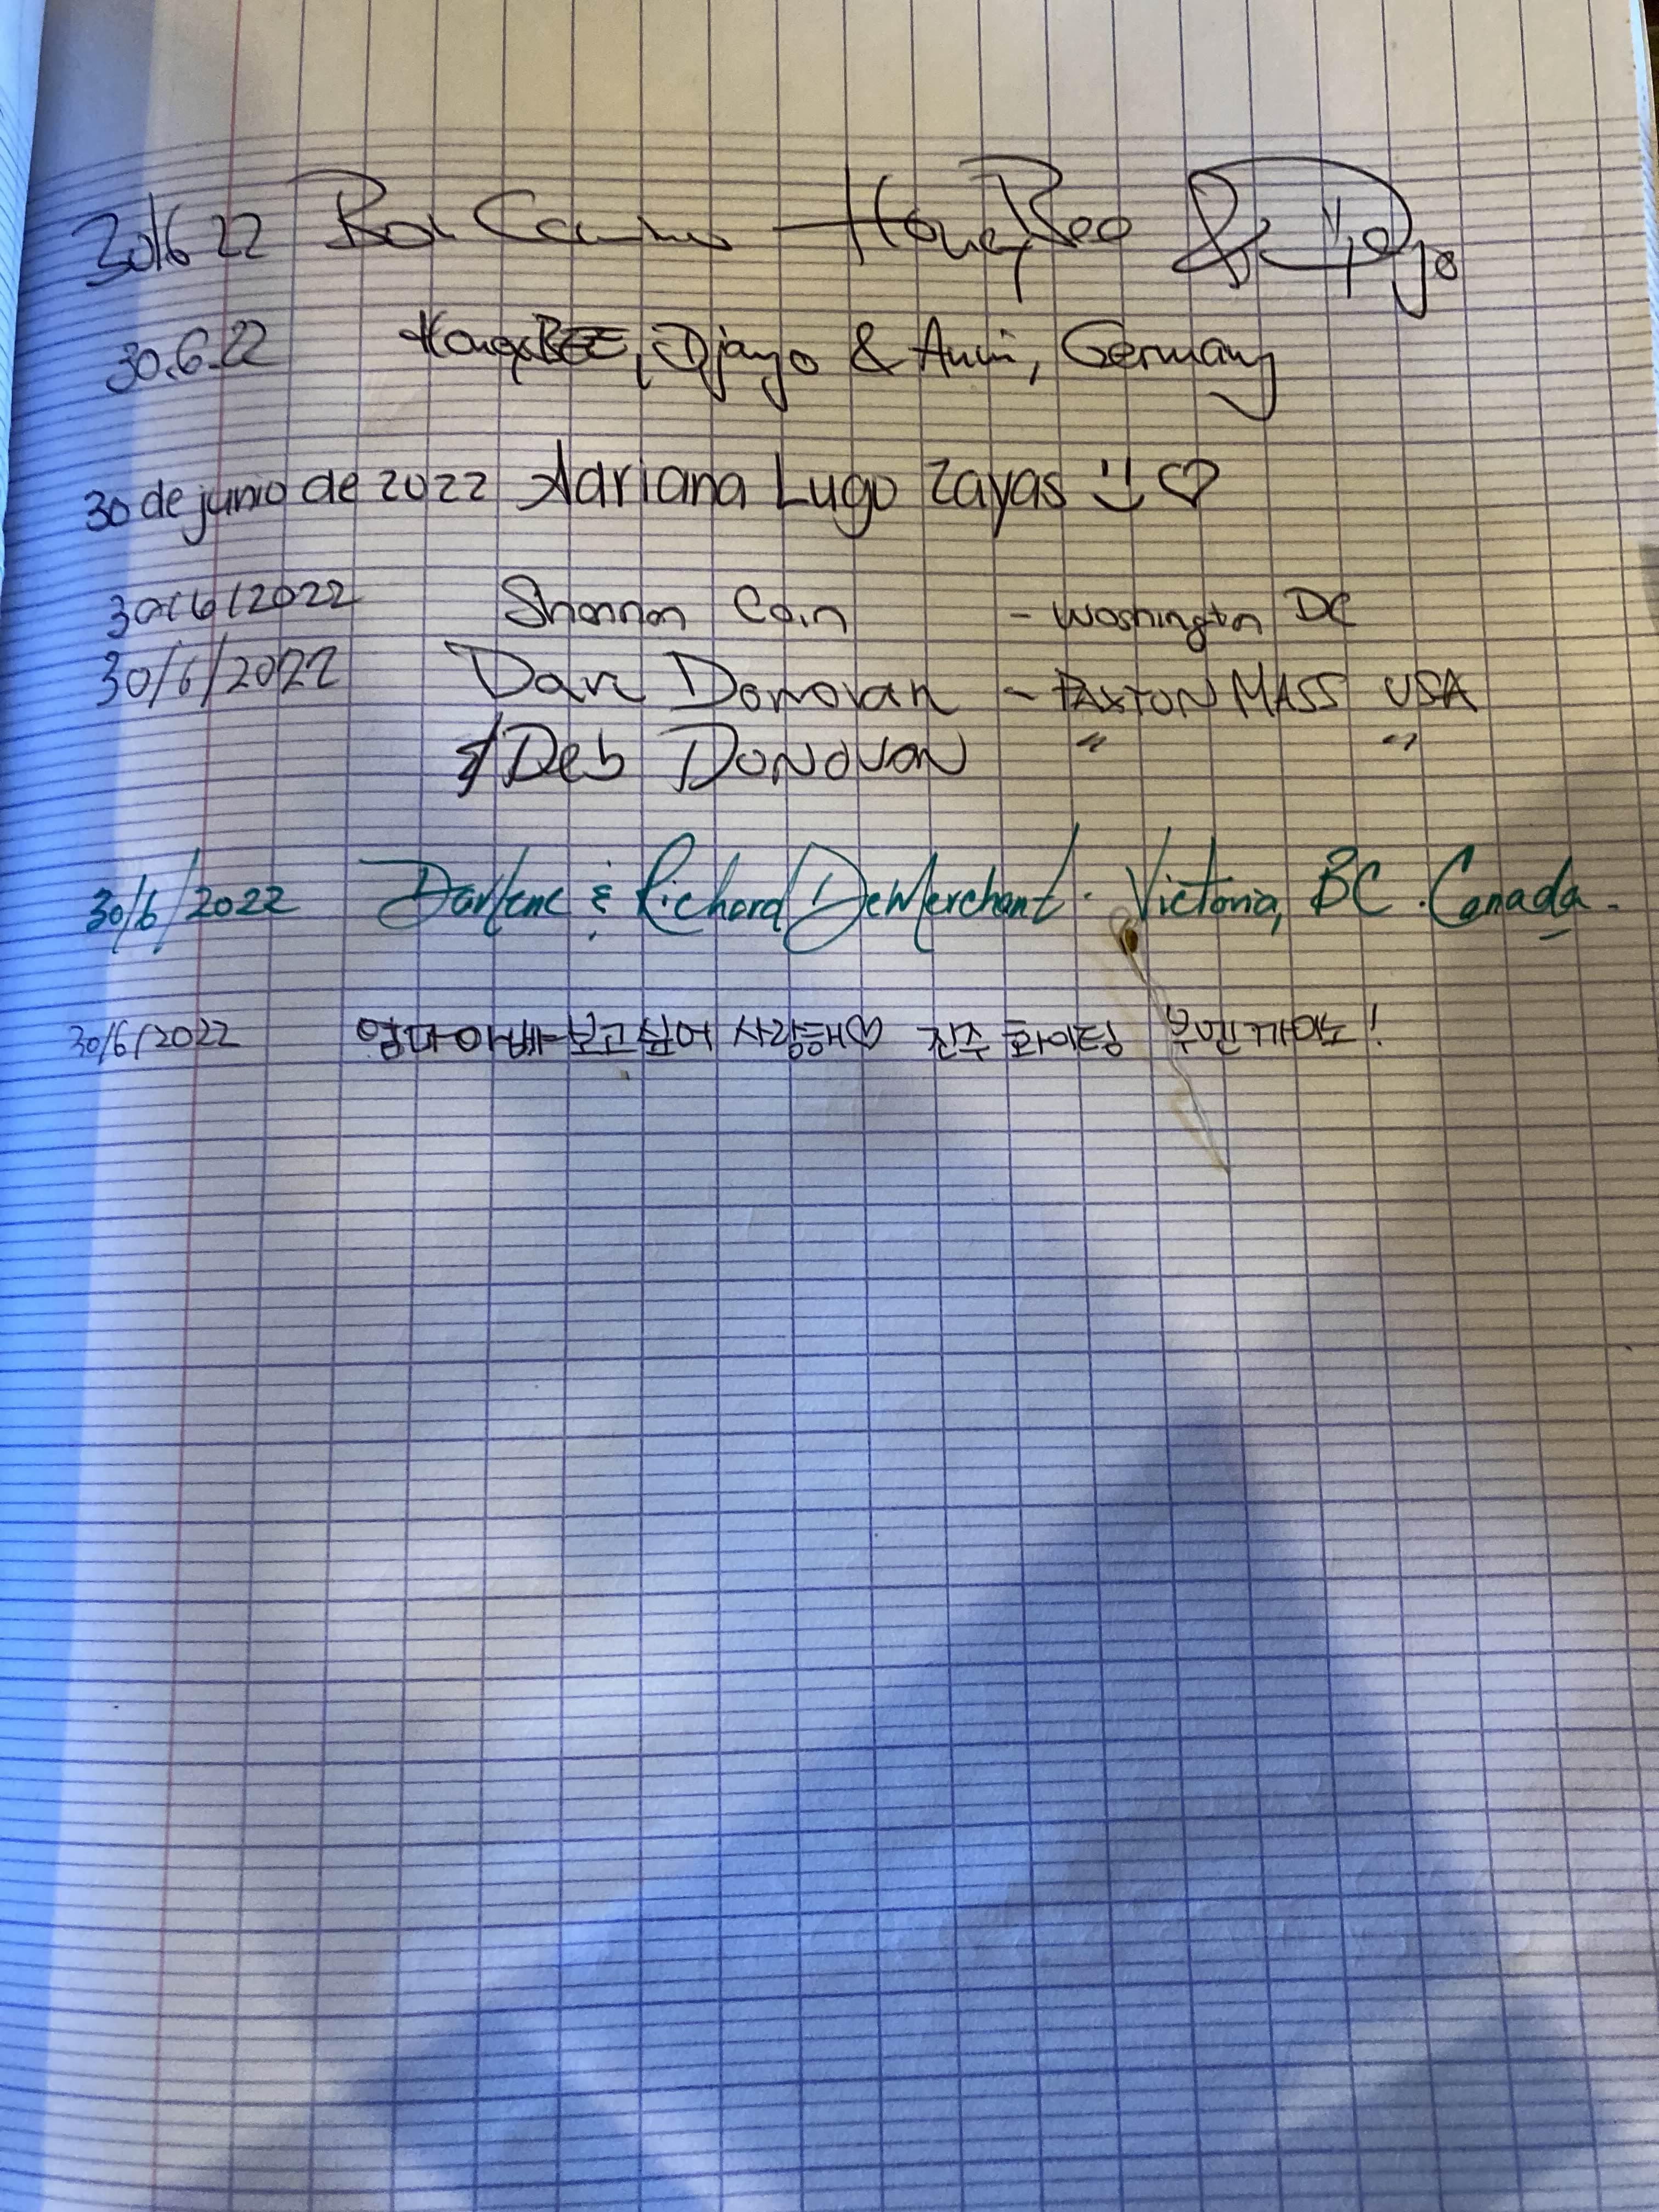 30/6 22 Bon Camino HoneyBee & Django
30.6.22 HoneyBEE, Django & Anni, Germany
30 de junio de 2022 Adriana Lugo Zayas
30/6/2022 Shannon Cain - Washington DC
30/6/2022 Dan Donovan - PAXTON MASS USA
Deb DONOVAN " "
30/6/2022 Darlene & Richard DeMerchant. Victoria, BC. Canada.
30/6/2022 엄마 아빠 보고싶어 사랑해♡ 진주 화이팅 부엔까미노!